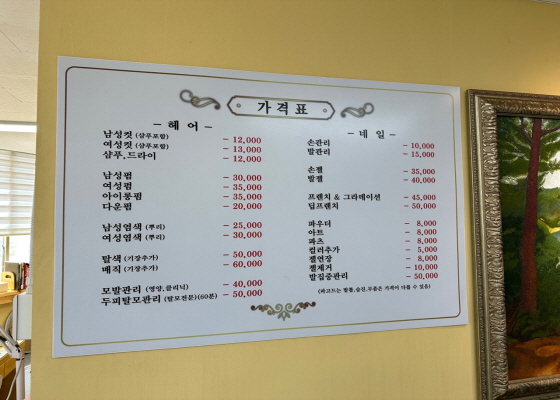 가격표
- 헤어 -
남성컷 (샴푸포함) - 12,000
여성컷 (샴푸포함) - 13,000
샴푸,드라이 - 12,000
남성펌 - 30,000
여성펌 - 35,000
아이롱펌 - 35,000
다운펌 - 20,000
남성염색 (뿌리) - 25,000
여성염색 (뿌리) - 30,000
탈색 (기장추가) - 50,000
매직 (기장추가) - 60,000
모발관리 (영양,클리닉) - 40,000
두피탈모관리 (탈모전문)(60분) - 50,000
- 네일 -
손관리 - 10,000
발관리 - 15,000
손젤 - 35,000
발젤 - 40,000
프렌치 & 그라데이션 - 45,000
딥프렌치 - 50,000
파우더 - 8,000
아트 - 8,000
파츠 - 8,000
컬러추가 - 5,000
젤연장 - 8,000
젤제거 - 10,000
발집중관리 - 50,000